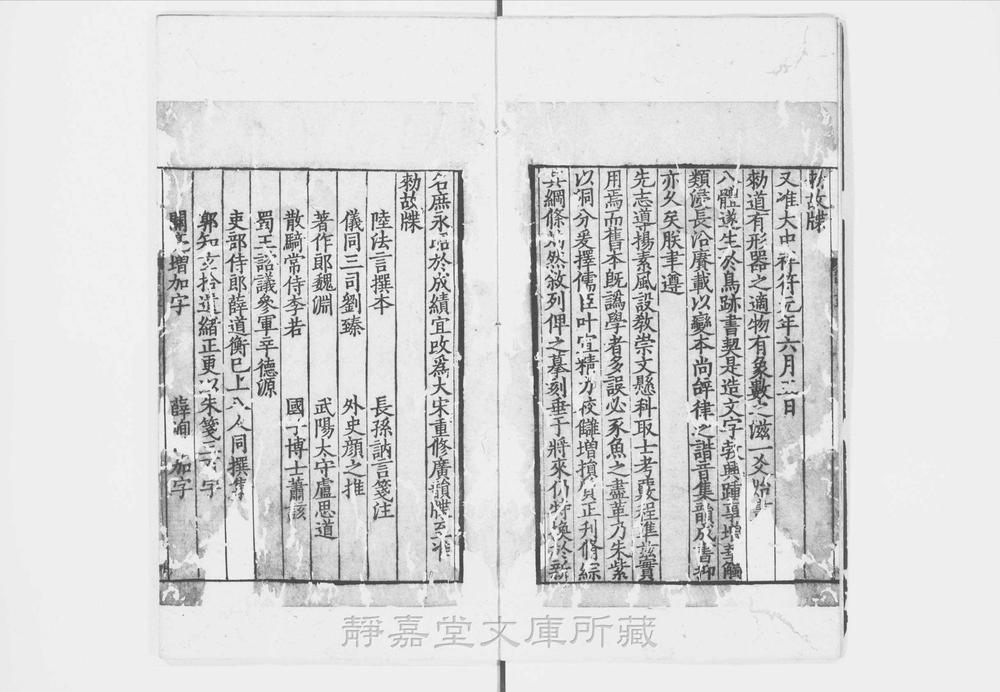 勑故牒
又准大中祥符元年六月五日
勑道有形器之適物有象數之滋一爻始
八體遂生於鳥跡書契是造文字勃興踵事增華觸
類浸長沿賡載以變本尚辭律之諧音集韻成書抑
亦久矣朕聿遵
先志導揚素風設教崇文懸科取士考覈程準茲實
用焉而舊本既譌學者多誤必豕魚之盡革乃朱紫
以洞分爰擇儒臣叶宣精力校讎增損質正刊修綜
其綱條灼然敘列俾之摹刻垂于將來仍特換於新
名庶永昭於成績宜改爲大宋重修廣韻牒至准
勑故牒
陸法言撰本 長孫訥言箋注
儀同三司劉臻 外史顏之推
著作郎魏淵 武陽太守盧思道
散騎常侍李若 國子博士蕭該
蜀王諮議參軍辛德源
吏部侍郎薛道衡已上八人同撰集
郭知玄拾遺緒正更以朱箋三百字
關亮增加字 薛峋 加字
靜嘉堂文庫所藏